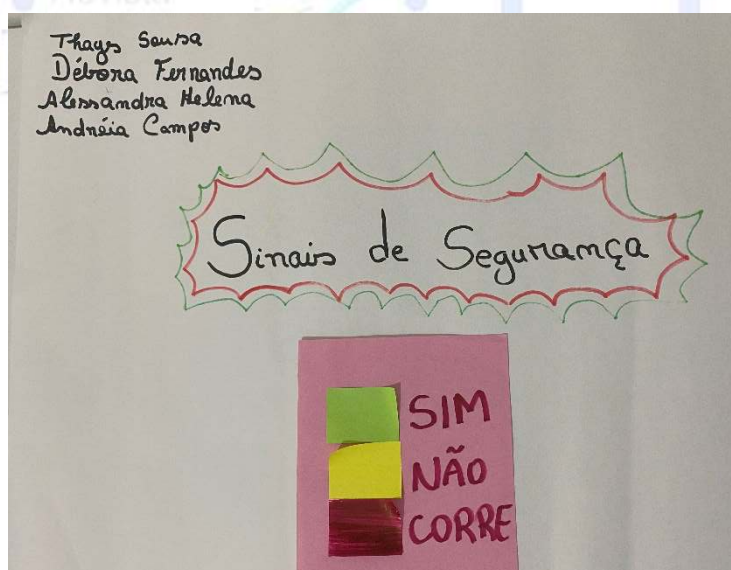 Thays Sousa
Débora Fernandes
Alessandra Helena
Andréia Campos
Sinais de Segurança
SIM
NÃO
CORRE